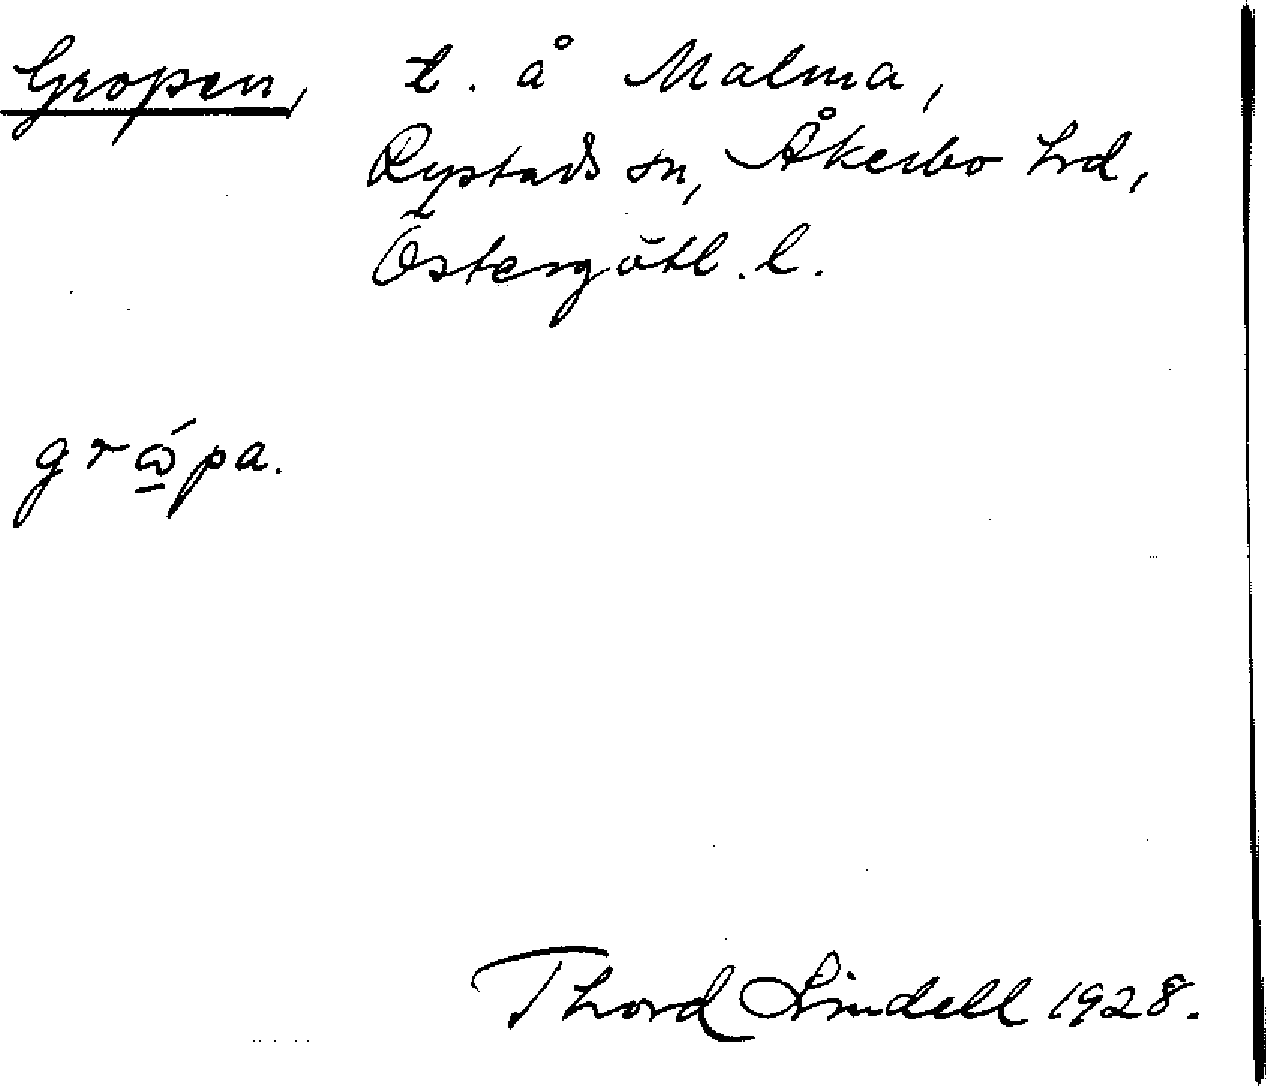 Gropen, t. å Malma,
Rystads sn, Åkerbo hd,
Östergötl. l.
grώ̲pa.
Thord Lindell 1928.